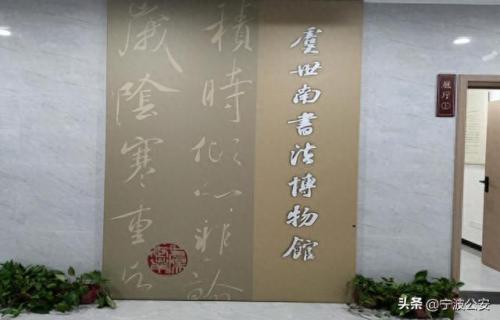 虞世南書法博物館
積時 雅論
歲陰寒重
展厅①
头条 @宁波公安